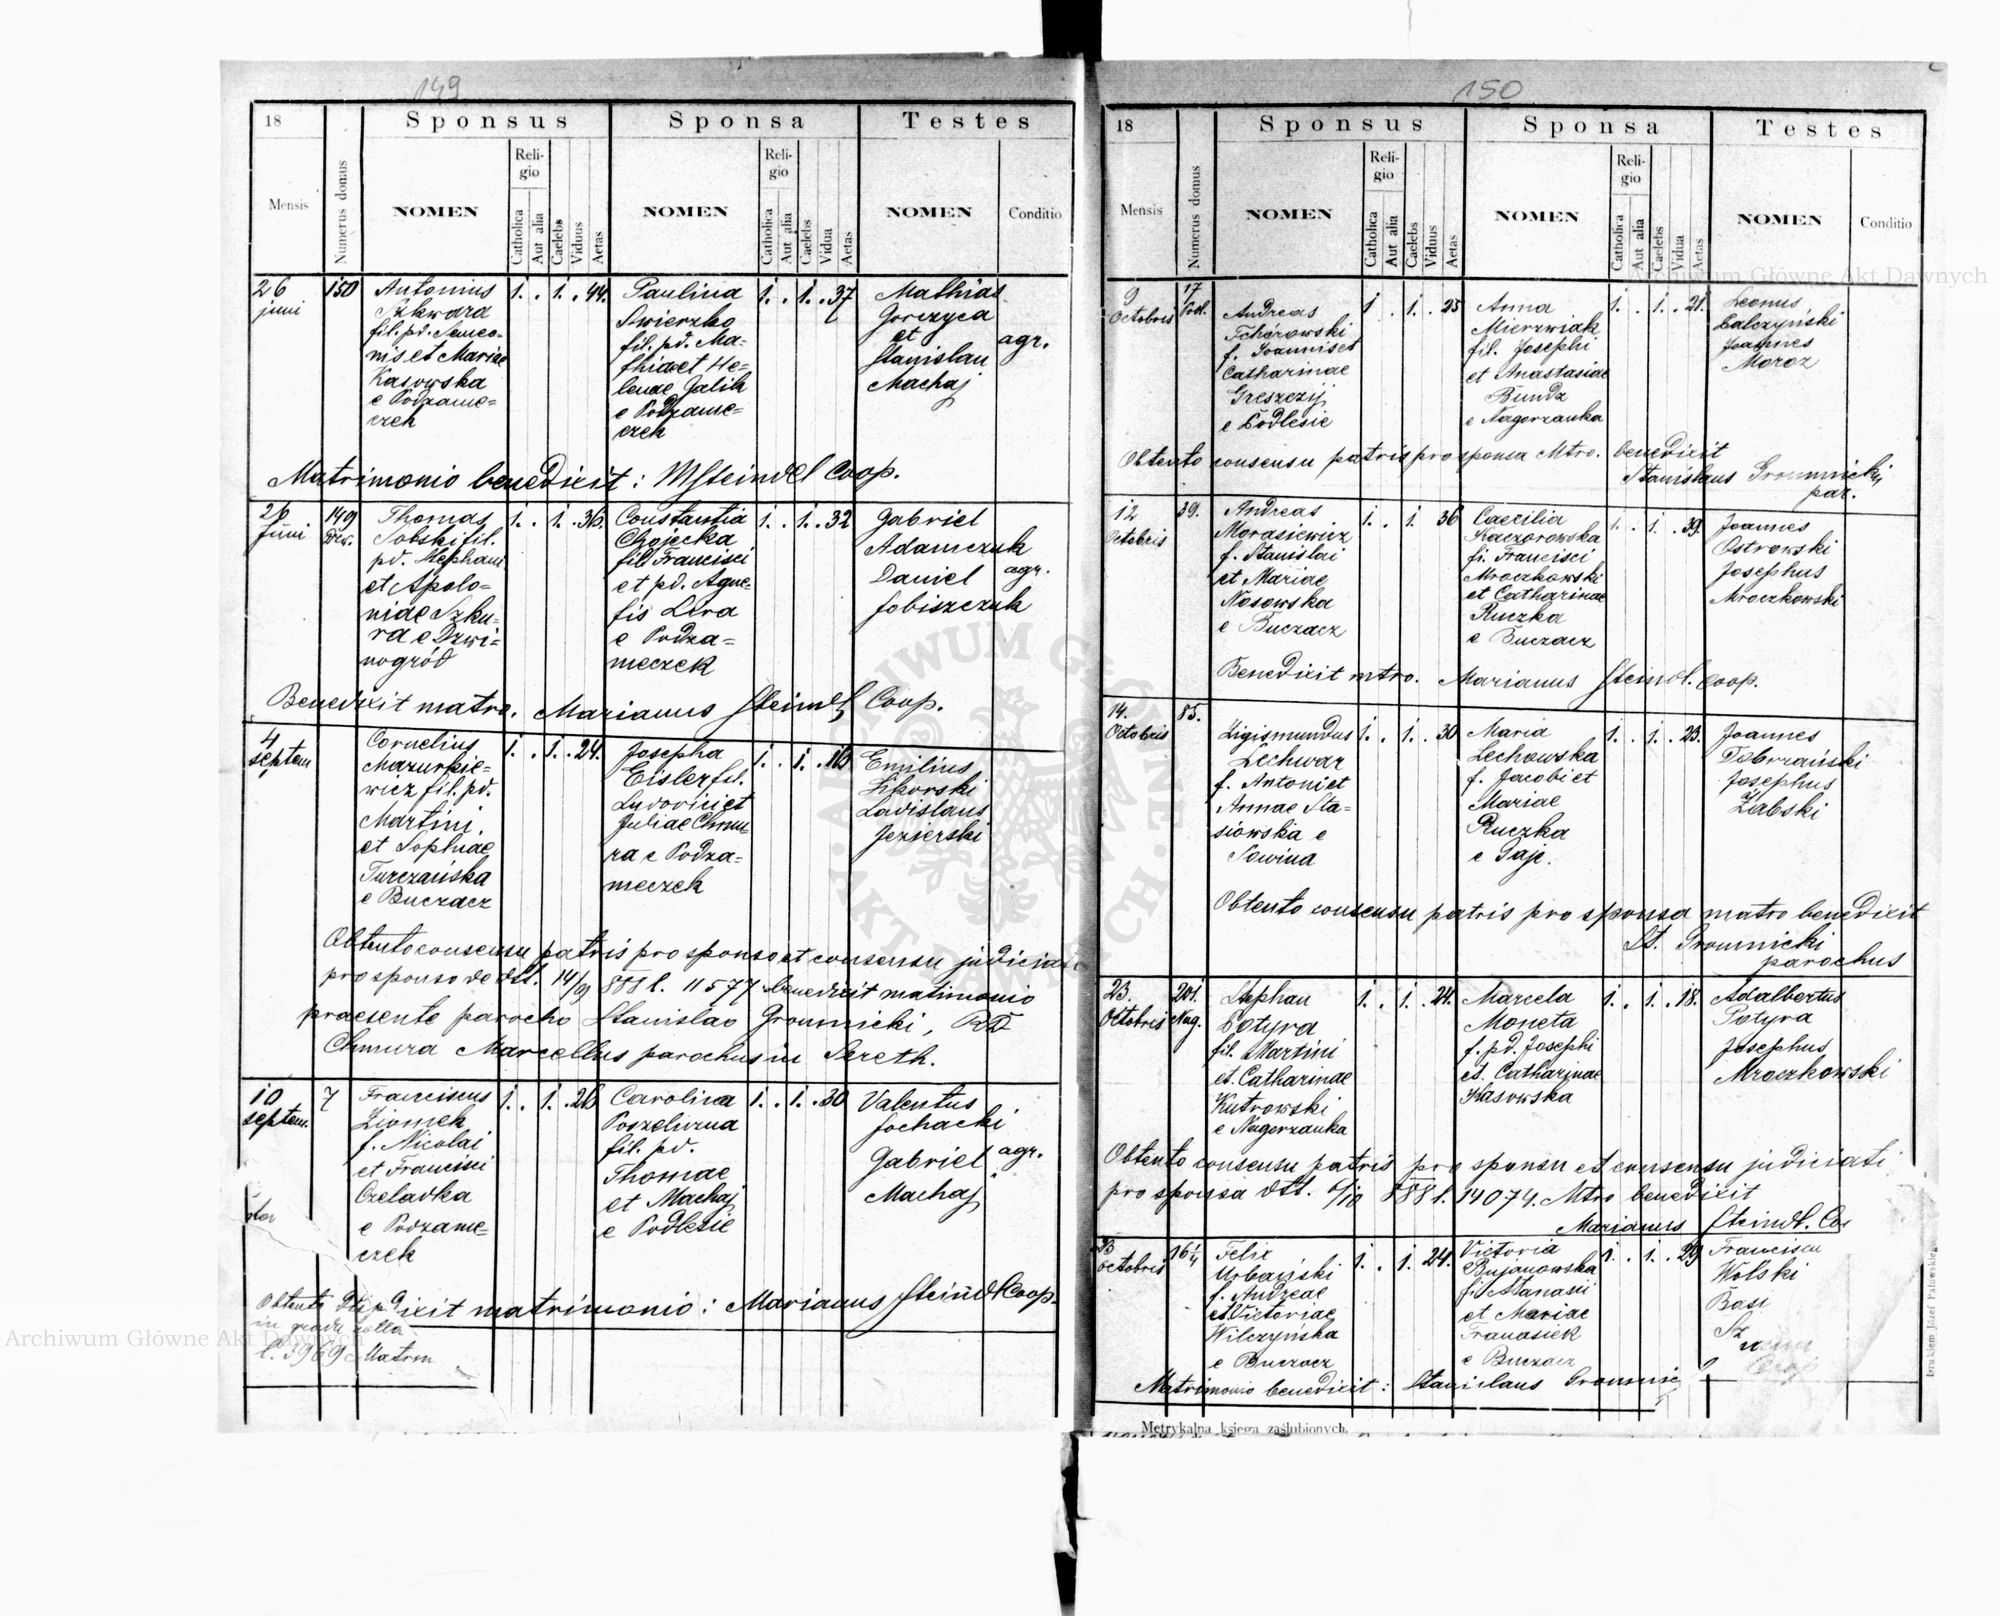 149
18
Mensis
Numerus domus
Sponsus
NOMEN
Religio
Catholica
Aut alia
Caelebs
Viduus
Aetas
Sponsa
NOMEN
Religio
Catholica
Aut alia
Caelebs
Vidua
Aetas
Testes
NOMEN
Conditio
26
juni
150
Antonius
Szkwara
fil. pd. Simeo-
nis et Mariae
Kasowska
e Podzame-
czek
1. . 1. . 44.
Paulina
Swierzko
fil. pd. Ma-
thia et He-
lenae Galik
e Podzame-
czek
1. . 1. . 37
Mathias
Gorczyca
et
Stanislau
Machaj
agr.
Matrimonio benedixit : MSteindel Coop.
26
Juni
149
Dzw.
Thomas
Sobski fil.
pd. Stephani
et Apolo-
niae Szku-
ra e Dzwi-
nogród
1. . 1. . 36.
Constantia
Chojecka
fil Francisci
et pd. Agne-
tis Lera
e Podza-
meczek
1. . 1. . 32
Gabriel
Adamczuk
Daniel
Jobiszczuk
agr.
Benedixit matro. Marianus Steindl Coop.
4
septem
Cornelius
Mazurkie-
wicz fil. pd.
Martini,
et Sophiae
Turczańska
e Buczacz
1. . 1. . 24.
Josepha
Eisler fil.
Ludovici et
Juliae Chmu-
ra e Podza-
meczek
1. . 1. .
Emilius
Sikorski
Ladislaus
Jezierski
Obtento consensu patris pro sponsa et consensu judiciali
pro sponso de dtt. 14/9 888 l. 11577 benedixit matimonio
praesente parocho Stanislao Gromnicki, RD
Chmura Marcellus parochus in Sereth.
10
septem.
7
Franciscus
Ziomek
f. Nicolai
et Francisci
Czeladka
e Podzame-
czek
1. . 1. . 26
Carolina
Poszeliuzna
fil. pd.
Thomae
et Machaj
e Podlesie
1. . 1. . 30
Valentus
Jochacki
Gabriel
Machaj
agr.
Obtento
dixit matrimonio : Marianus Steindl Coop.
in gradu
l. 3969 Matrm
150
18
Mensis
Numerus domus
Sponsus
NOMEN
Religio
Catholica
Aut alia
Caelebs
Viduus
Aetas
Sponsa
NOMEN
Religio
Catholica
Aut alia
Caelebs
Vidua
Aetas
Testes
NOMEN
Conditio
9
Octobris
17
Pod.
Andreas
Tchórowski
f. Joannis et
Catharinae
Greszczij
e Podlesie
1 . 1. . 25
Anna
Mierzwiak
fil. Josephi
et Anastasiae
Bundz
e Nagorzanka
1. . 1. . 21.
Leonus
Balczyński
Joannes
Moroz
Obtento consensu patris pro sponsa Mtro. benedixit
Stanislaus Gromnicki
par.
12
Octobris
39.
Andreas
Morasiewicz
f. Stanislai
et Mariae
Nosowska
e Buczacz
1. . 1. 36
Caecilia
Kaczorowska
fi. Francisci
Mroczkowski
et Catharinae
Ruczka
e Buczacz
1. . 1. . 39.
Joannes
Ostrowski
Josephus
Mroczkowski
Benedixit mtro. Marianus Steindl. Coop.
14.
Octobris
85.
Zigismundus
Lechwar
f. Antoni et
Annae Sta-
siowska e
Sowina
1. . 1. . 30
Maria
Lechowska
f. Jacobi et
Mariae
Ruczka
e Gaje.
1. . 1. . 23.
Joannes
Dobrzański
Josephus
Żabski
Obtento consensu patris pro sponsa matro benedixit
St. Gromnicki
parochus
23.
Octobris
201.
Nag.
Stephan
Potyra
fil. Martini
et. Catharinae
Kutrowski
e Nagorzanka
1. . 1. . 24.
Marcela
Moneta
f. pd. Josephi
et. Catharinae
Kasowska
1. . 1. . 18.
Adalbertus
Potyra
Josephus
Mroczkowski
Obtento consensu patris pro sponsu et consensu judiciati
pro sponsa dtt. 6/10 888 l. 14074. Mtro benedixit
Marianus Steindl. Co
octobris
Felix
Urbański
f. Andreae
et Victoriae
Wilczyńska
e Buczacz
1. . 1. 24.
Victoria
Bujanowska
fi Atanasii
et Mariae
Franasiek
e Buczacz
1. . 1. . 29
Franciscu
Wolski
Basi
Sz
Matrimonio benedixit : Stanislaus Gromnic
Metrykalna księga zaślubionych.
Drukiem Józef Pawłowskiego
Archiwum Główne Akt Dawnych
Archiwum Główne Akt Dawnych
ARCHIWUM GŁÓWNE AKT DAWNYCH